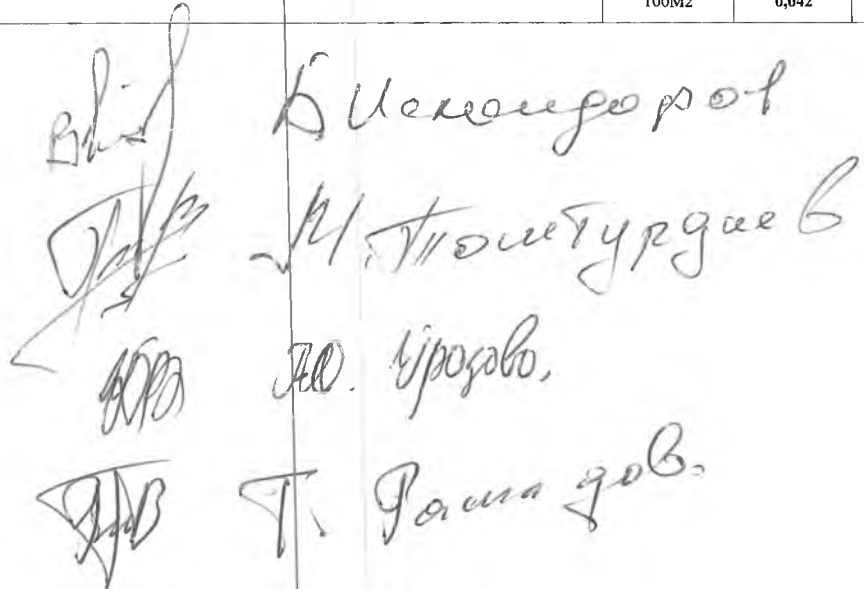 100М2 0,642
Б Искандоров
М. Тоштурдиев
Ю. Уродово.
Т. Рашидов.